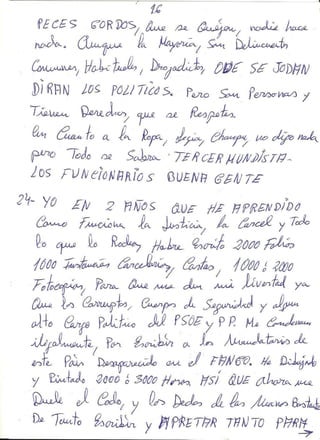 16
PECES GORDOS, Que se Quejan, nadie hace
nada. Aunque la Mayoria, Son Delincuents
Comunes, Habituales, Drogadictos, QUE SE JODAN
DIRAN LOS POLITICOS. Pero Son Personas y
Tienen Derechos, que se Respeten.
En Cuanto a la Ropa, Lejia, Champu, no digo nada
pero Todo se Sabra. TERCERMUNDISTA-
LOS FUNCIONARIOS BUENA GENTE
24- YO EN 2 AÑOS QUE HE APRENDIDO
Como Funciona la Justicia, la Carcel y Todo
lo que lo Rodea, Habre Escrito 2000 Folios
1000 Instancias Carcelarias, Cartas, 1000 ó 2000
Fotocopias, Para Que me den mi Livertad ya
Que los Corruptos, Cuerpos de Seguridad y algun
alto Cargo Politico del PSOE y PP. Me Condenaron
ilegalmente, Por Escribir a los Mandatarios de
este Pais Desaparecido en el FANGO. He Dibujado
y Pintado 2000 ó 3000 Horas ASI QUE ahora me
Duele el Codo, y los Dedos de las Manos Bastante
De Tanto Escribir y APRETAR TANTO PARA
→